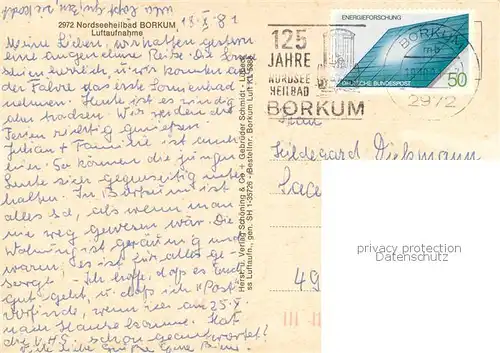 2972 Nordseeheilbad BORKUM
Luftaufnahme
13. X 81
Meine Lieben, wir hatten gestern
eine angenehme Reise. Die Sonne
schien herrlich, u. wir konnten an
der Fähre das erste Sonnenbad
nehmen. Heute ist es windig
aber trocken. Wir werden die
Ferien richtig genießen.
Julian + Familie ist auch
hier. So können die jungen
Leute sich gegenseitig unter-
halten. In Borkum ist
alles so, als wenn man
nie weg gewesen wär. Die
Wohnung ist geräumig und
warm, es ist für alles ge-
sorgt. – Ich hoffe, daß es Euch
gut geht, u. daß ich "Post"
vorfinde, wenn ich am 25.X.
nach Hause komme. Hat
die V.H.S. schon geantwortet?
Viele liebe Grüße
Herst. u. Verlag Schöning & Co + Gebrüder Schmidt - Lübeck
ss Luftaufn., gen. SH 1-35726 - Bestellnr. Borkum Luft KL
125
JAHRE
NORDSEE
HEILBAD
BORKUM
ENERGIEFORSCHUNG
DEUTSCHE BUNDESPOST
50
BORKUM
2972
Frau
Hildegard Diekmann
49
privacy protection
Datenschutz